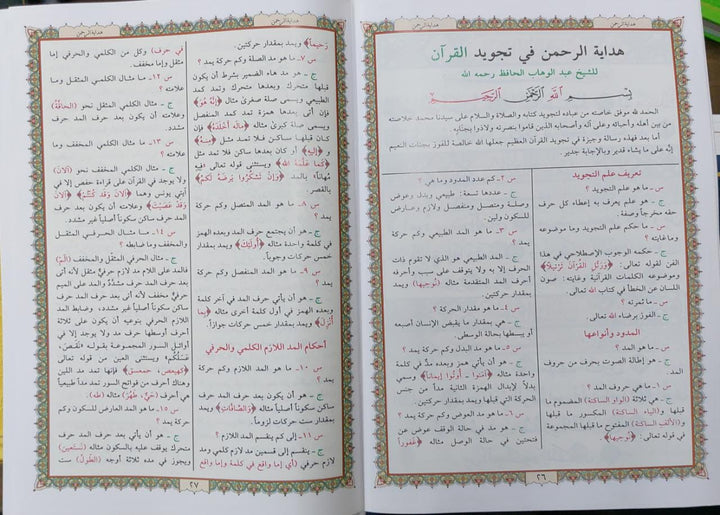 هداية الرحمن
هداية الرحمن في تجويد القرآن
للشيخ عبد الوهاب الحافظ رحمه الله
بسم الله الرحمن الرحيم
الحمد لله موفق خاصته من عباده لتجويد كتابه والصلاة والسلام على سيدنا محمد خلاصته
من بين أهله وأحبائه وعلى آله وأصحابه الذين قاموا بنصرته ولاذوا بجنابه
أما بعد فهذه رسالة وجيزة في تجويد القرآن العظيم جعلها الله خالصة للفوز بجنات النعيم
إنَّه على ما يشاء قدير وبالإجابة جدير.
تعريف علم التجويد
س ـ ما هو علم التجويد ؟
ج ـ هو علم يعرف به إعطاء كل حرف
حقه مخرجاً وصفة.
س ـ ما حكم علم التجويد وما موضوعه
وما غايته ؟
ج ـ حكمه الوجوب الإصطلاحي في هذا
الفن لقوله تعالى: ﴿وَرَتِّلِ الْقُرْآنَ تَرْتِيلاً﴾
وموضوعه الكلمات القرآنية وغايته: صون
اللسان عن الخطأ في كتاب الله تعالى.
س ـ ما ثمرته ؟
ج ـ الفوز برضاء الله تعالى.
المدود وأنواعها
س ـ ما هو المد ؟
ج ـ هو إطالة الصوت بحرف من حروف
المد.
س ١ـ ما هي حروف المد ؟
ج ـ هي ثلاثة (الواو الساكنة) المضموم ما
قبلها و(الياء الساكنة) المكسور ما قبلها
و(الألف الساكنة) المفتوح ما قبلها المجموعة
في قوله تعالى. ﴿نُوحِيهَا﴾
س ٢ـ كم عدد المدود وما هي ؟
ج ـ عددها تسعة: طبيعي وبدل وعوض
وصلة ومتصل ومنفصل ولازم وعارض
للسكون ولين.
س ٣ـ ما هو المد الطبيعي وكم حركة
يمد ؟
ج ـ المد الطبيعي هو الذي لا تقوم ذات
الحرف إلا به ولا يتوقف على سبب وأحرفه
أحرف المد المتقدمة مثاله (نُوحِيهَا) ويمد
بمقدار حركتين.
س ٤ـ ما هو مقدار الحركة ؟
ج ـ هي بمقدار ما يقبض الإنسان أصبعه
أو يبسطها.
س ٥ـ ما هو مد البدل وكم حركة يمد ؟
ج ـ هو أن يأتي همز وبعده مدٌّ في كلمة
واحدة مثاله ﴿آمنوا ـ أُوتُوا إيماناً﴾ وسمي
بدلاً لإبدال الهمزة الثانية مداً من جنس
الحركة التي قبلها ويمد بمقدار حركتين.
س ٦ـ ما هو مد العوض وكم حركة يمد ؟
ج ـ هو مد في حالة الوقف عوض عن
فتحتين في حالة الوصل مثاله ﴿غَفُوراً
٢٦
هداية الرحمن
رَحِيماً﴾ ويمد بمقدار حركتين.
س ٧ـ ما هو مد الصلة وكم حركة يمد ؟
ج ـ هو مد هاء الضمير بشرط أن يكون
قبلها متحرك وبعدها متحرك وتمد كمد
الطبيعي ويسمى صلة صغرىٰ مثاله ﴿إِنَّهُ هُوَ﴾
فإن أتىٰ بعدها همزة تمد كمد المنفصل
ويسمى صلة كبرىٰ مثاله ﴿مَالَهُ أَخْلَدَهُ﴾ فإن
كان قبلها ساكن فلا تمد مثل ﴿مِنْهُ﴾
و﴿إِلَيهِ﴾ أو كان بعدها ساكن فلا تمد مثل
﴿كَمَا عَلَّمَهُ الله﴾ ويستثنى قوله تعالى ﴿فِيهِ
مُهَاناً﴾ بالمد ﴿وَإِنْ تَشْكُرُوا يَرْضَهُ لَكُمْ﴾
بالقصر.
س ٨ـ ما هو المد المتصل وكم حركة
يمد ؟
ج ـ هو أن يجتمع حرف المد وبعده الهمز
في كلمة واحدة مثاله ﴿أُولَٰئِكَ﴾ ويمد بمقدار
خمس حركات وجوباً.
س ٩ـ ما هو المد المنفصل وكم حركة
يمد ؟
ج ـ هو أن يأتي حرف المد في آخر كلمة
وبعده الهمز في أول كلمة أخرى مثاله ﴿بما
أُنْزِلَ﴾ ويمد بمقدار خمس حركات جوازاً.
أحكام المد اللازم الكلمي والحرفي
س ١٠ـ ما هو المد اللازم وكم حركة
يمد ؟
ج ـ هو أن يكون بعد حرف المد حرف
ساكن سكوناً أصلياً مثاله ﴿وَالصَّافَّاتِ﴾ ويمد
بمقدار ست حركات لزوماً.
س ١١ـ إلى كم ينقسم المد اللازم ؟
ج ـ ينقسم إلى قسمين مد لازم كلمي ومد
لازم حرفي (أي إما واقع في كلمة وإما واقع
في حرف) وكل من الكلمي والحرفي إما
مثقل وإما مخفف.
س ١٢ـ ما مثال الكلمي المثقل وما
علامته ؟
ج ـ مثال الكلمي المثقل نحو ﴿الحَاقَّةُ﴾
وعلامته أن يكون بعد حرف المد حرف
مشدد.
س ١٣ـ ما مثال الكلمي المخفف وما
علامته ؟
ج ـ مثال الكلمي المخفف نحو ﴿آلآنَ﴾
ولا يوجد في القرآن على قراءة حفص إلا في
آيتي يونس وهما ﴿آلآنَ وَقَدْ كُنْتُمْ﴾ ﴿آلآنَ
وَقَدْ عَصَيْتَ﴾ وعلامته أن يكون بعد حرف
المد حرف ساكن سكوناً أصلياً غير مشدد.
س ١٤ـ ما مثال الحرفي المثقل
والمخفف وما ضابطه ؟
ج ـ مثال الحرفي المثقل والمخفف ﴿الم﴾
فالمد على اللام مد لازم حرفي مثقل لأنه أتى
بعد حرف المد حرف مشدّد والمد على الميم
حرفي مخفف لأنه أتى بعد حرف المد حرف
ساكن سكوناً أصلياً غير مشدد، وضابط المد
اللازم الحرفي بنوعيه أن يكون على ثلاثة
أحرف أوسطها حرف مد ولا يوجد إلا في
أوائل السور المجموعة بقوله «نَقَصَ
عَسَلُكُم» ويستثنى العين من قوله تعالى
﴿كهيعص ـ حمعسق﴾ فإنها تمد مد اللين
وهناك أحرف من فواتح السور تمد مداً طبيعياً
وهي أحرف (حَيٌّ، طَهُرَ) مثاله (طه).
س ١٥ـ ما هو المد العارض للسكون وكم
حركة يمد ؟
ج ـ هو أن يأتي بعد حرف المد حرف
متحرك يوقف عليه بالسكون مثاله ﴿نَسْتَعِين﴾
ويجوز في مده ثلاثة أوجه (الطُول) ست
٢٧